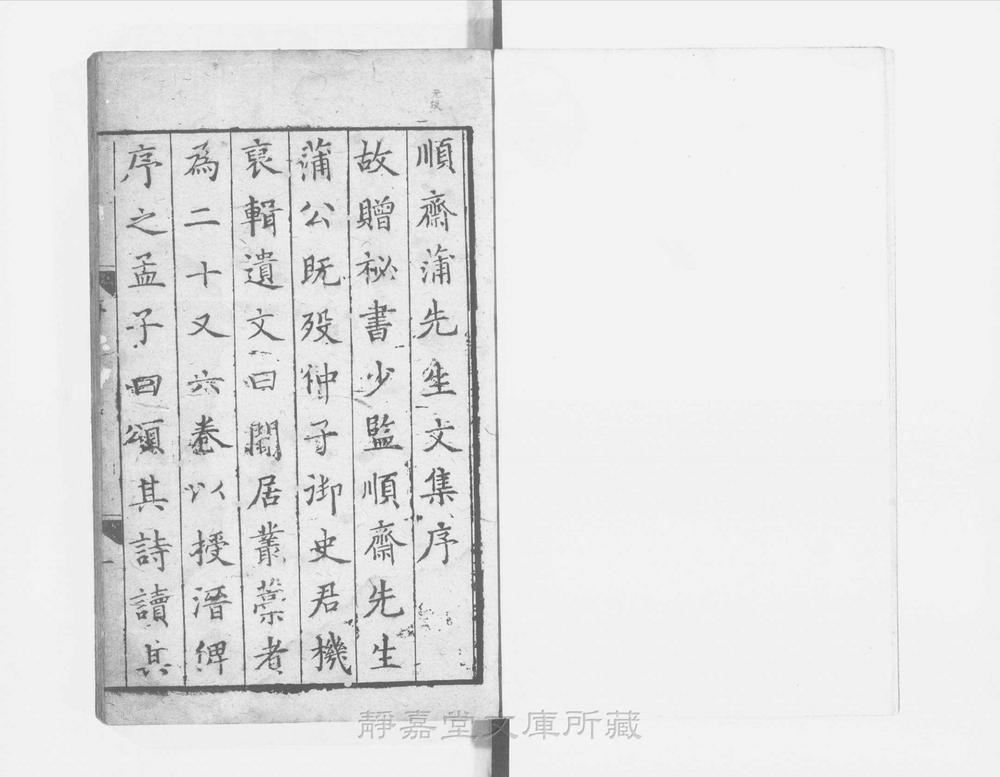 順齋蒲先生文集序
故贈祕書少監順齋先生
蒲公旣歿仲子御史君機
裒輯遺文曰閒居叢藁者
為二十又六卷以授溍俾
序之孟子曰頌其詩讀其
靜嘉堂文庫所藏